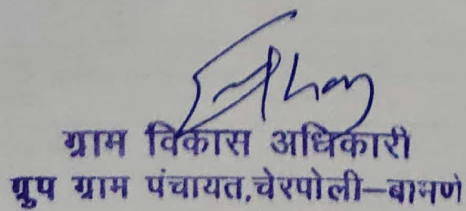 ग्राम विकास अधिकारी
ग्रुप ग्राम पंचायत,चेरपोली–बामणे